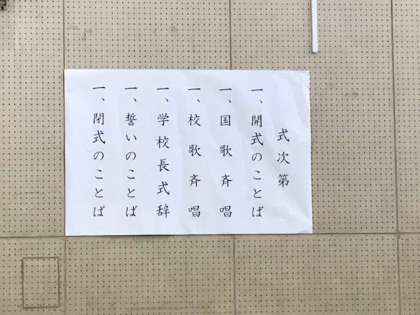 式次第
一、開式のことば
一、国歌斉唱
一、校歌斉唱
一、学校長式辞
一、誓いのことば
一、閉式のことば